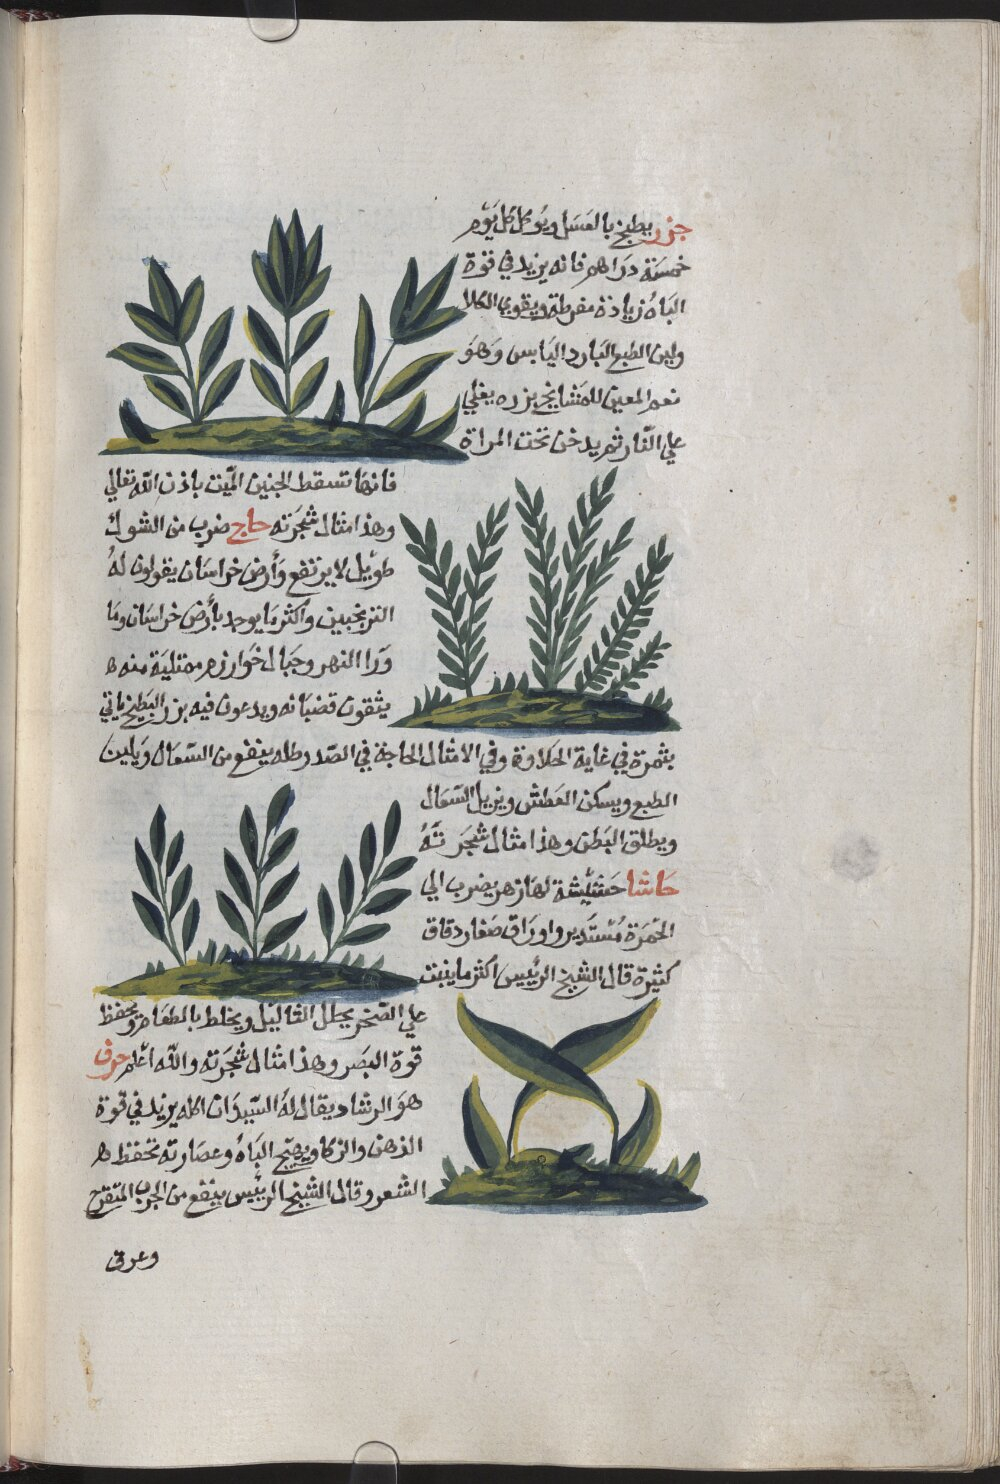 جزر يطبخ بالعسل ويوكل كل يوم
خمسة دراهم فانه يزيد في قوة
الباه زيادة مفرطة ويقوي الكلا
ولين الطبع البارد اليابس وهو
نعم المعين للمشايخ بزره يغلي
علي النار ثم يدخن تحت المراة
فانها تسقط الجنين الميت باذن الله تعالي
وهذا مثال شجرته حاج ضرب من الشوك
طويل لا يرتفع وأرض خراسان يقولون له
الترنجبين واكثر ما يوجد بأرض خراسان وما
ورا النهر وجبال خوارزم ممتلية منه
يثقون قضبانه ويدعون فيه بزر البطيخ ياتي
بثمرة في غاية الحلاوة وفي الامثال الحاجة في الصدر وطله ينفع من السعال ويلين
الطبع ويسكن العطش ويزيل السعال
ويطلق البطن وهذا مثال شجرته
حاشا حشيشة لها زهر يضرب الي
الحمرة مستدير واوراق صغار دقاق
كثيرة قال الشيخ الرئيس اكثر ما ينبت
علي الصخر يحلل الثاليل ويخلط بالطعام ويحفظ
قوة البصر وهذا مثال شجرته والله أعلم حرف
هو الرشاد يقال له السيدان اكله يزيد في قوة
الذهن والزكا ويهيج الباه وعصارته تحفظ
الشعر وقال الشيخ الرئيس ينفع من الجرب المتقرح
وعرق